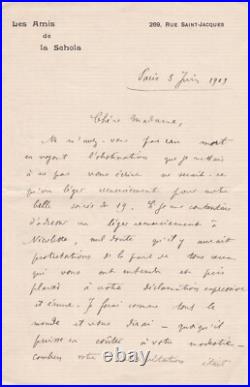 Les Amis
de
la Schola
269, Rue Saint-Jacques
Paris 3 Juin 1909
Chère Madame,
M n'avez-vous pas cru mort
en voyant l'obstination que je mettais
à ne pas vous écrire ne serait-ce
qu'un léger remerciement pour votre
belle soirée de 19. Si je me contentais
d'adresser un léger remerciement à
Nicolette, nul doute qu'il y aurait
protestations de la part de tous ceux
qui vous ont entendu et puis
à votre déclamation expressive
et émue. Je ferai comme tout le
monde et vous dirai - quoiqu'il
puisse en coûter à votre modestie -
combien votre était